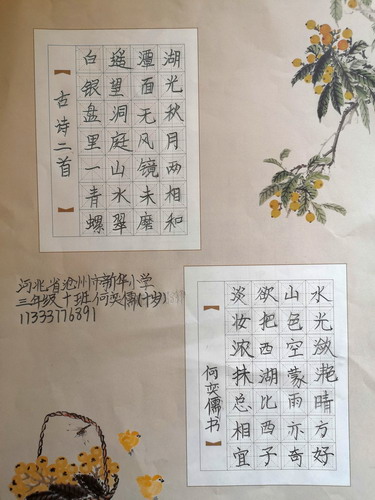 湖光秋月两相和
潭面无风镜未磨
遥望洞庭山水翠
白银盘里一青螺
古诗二首
河北省沧州市新华小学
三年级十班 何奕儒(十岁)
11333776391
水光潋滟晴方好
山色空蒙雨亦奇
欲把西湖比西子
淡妆浓抹总相宜
何奕儒书